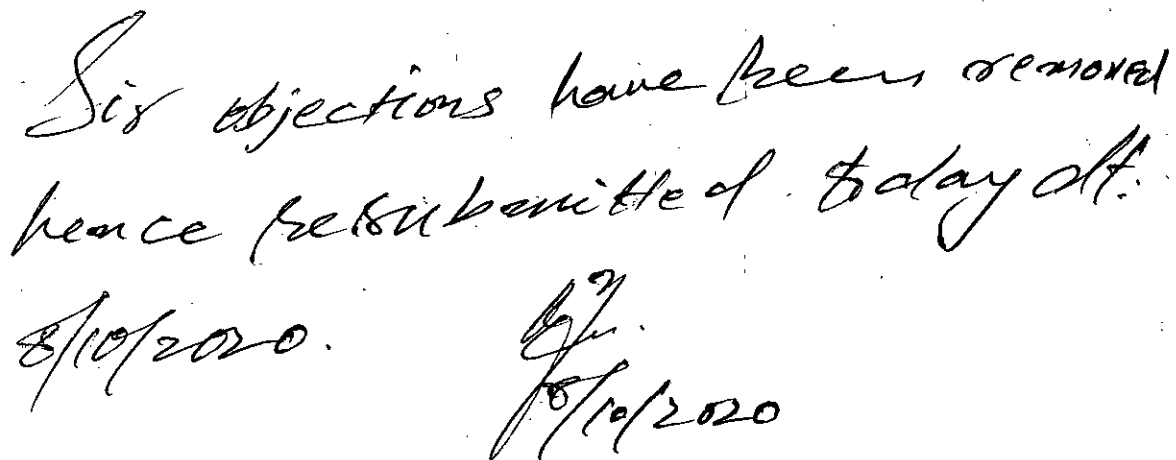 Sir objections have been removed
hence resubmitted today dt:
8/10/2020.
8/10/2020